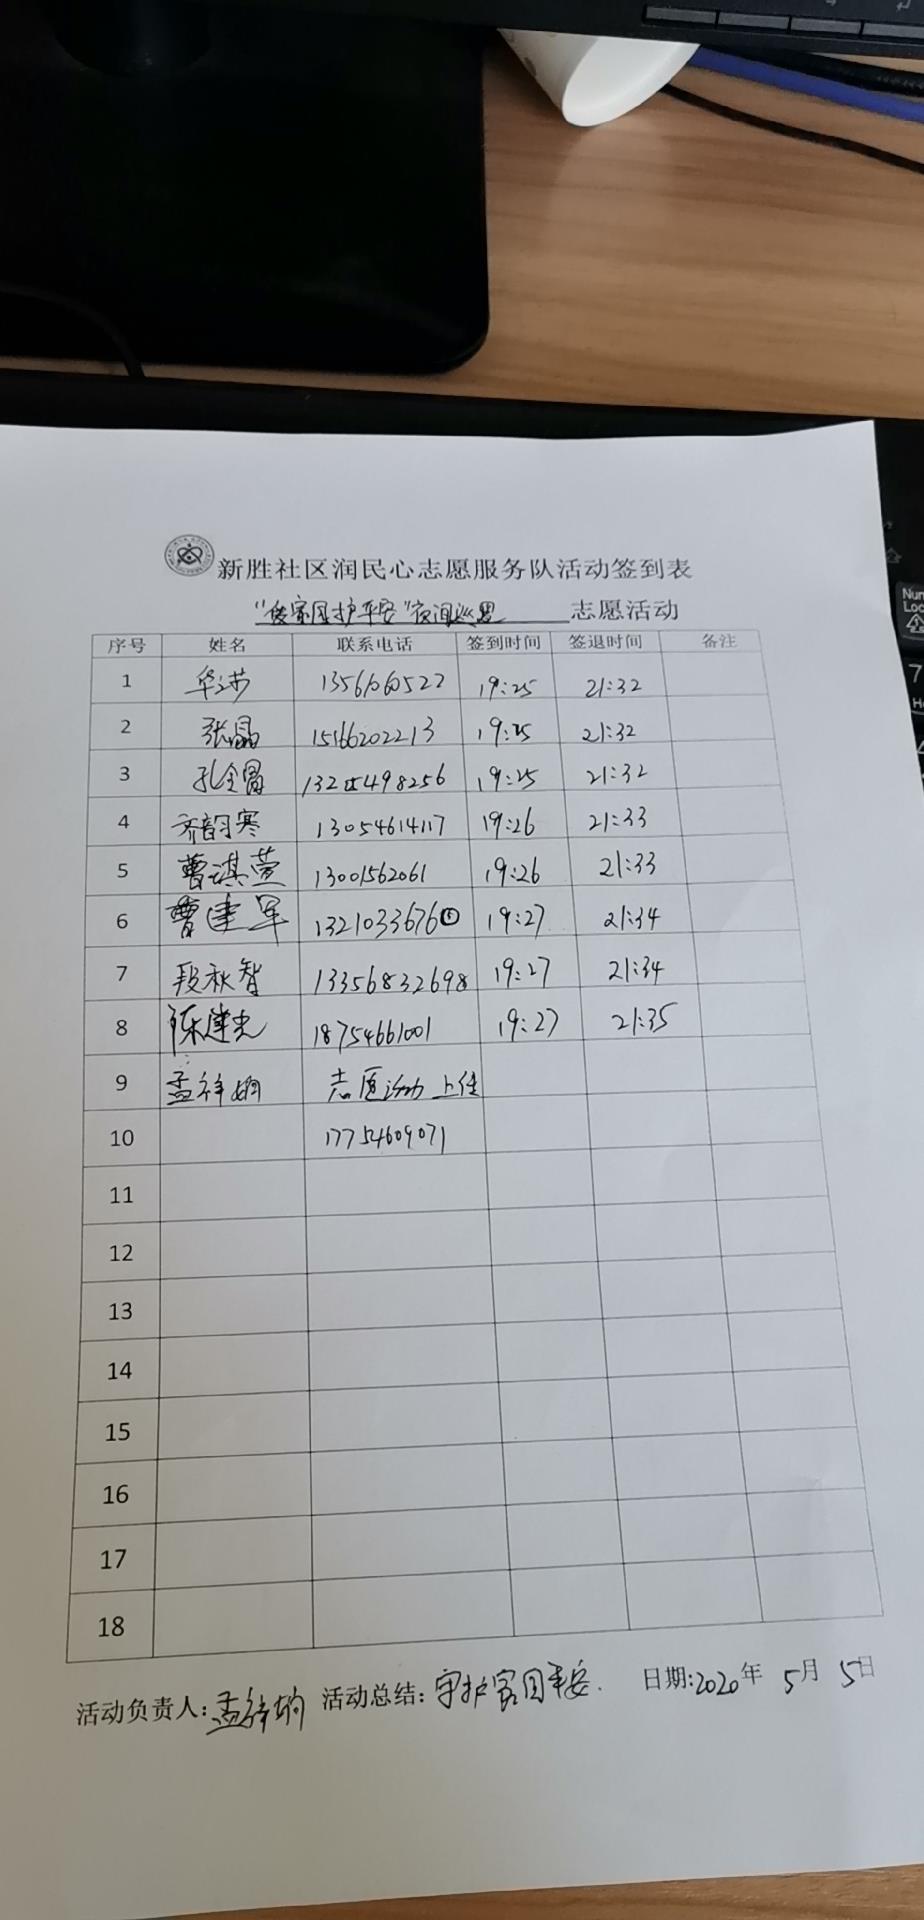 新胜社区润民心志愿服务队活动签到表
家园护平安"夜间巡逻 志愿活动
序号 姓名 联系电话 签到时间 签退时间 备注
1 华 19:25 21:32
2 张晶 15166202213 19:25 21:32
3 孔 19:25 21:32
4 齐韵寒 13054614117 19:26 21:33
5 曹淇萱 13001562061 19:26 21:33
6 曹建军 1321033676 19:27 21:34
7 段秋智 13356832698 19:27 21:34
8 陈建忠 18754661001 19:27 21:35
9 孟祥娟 志愿活动 上传
10 17754609071
11
12
13
14
15
16
17
18
活动负责人:孟祥娟 活动总结:守护家园平安. 日期:2020年 5月 5日
Num
Loc
7